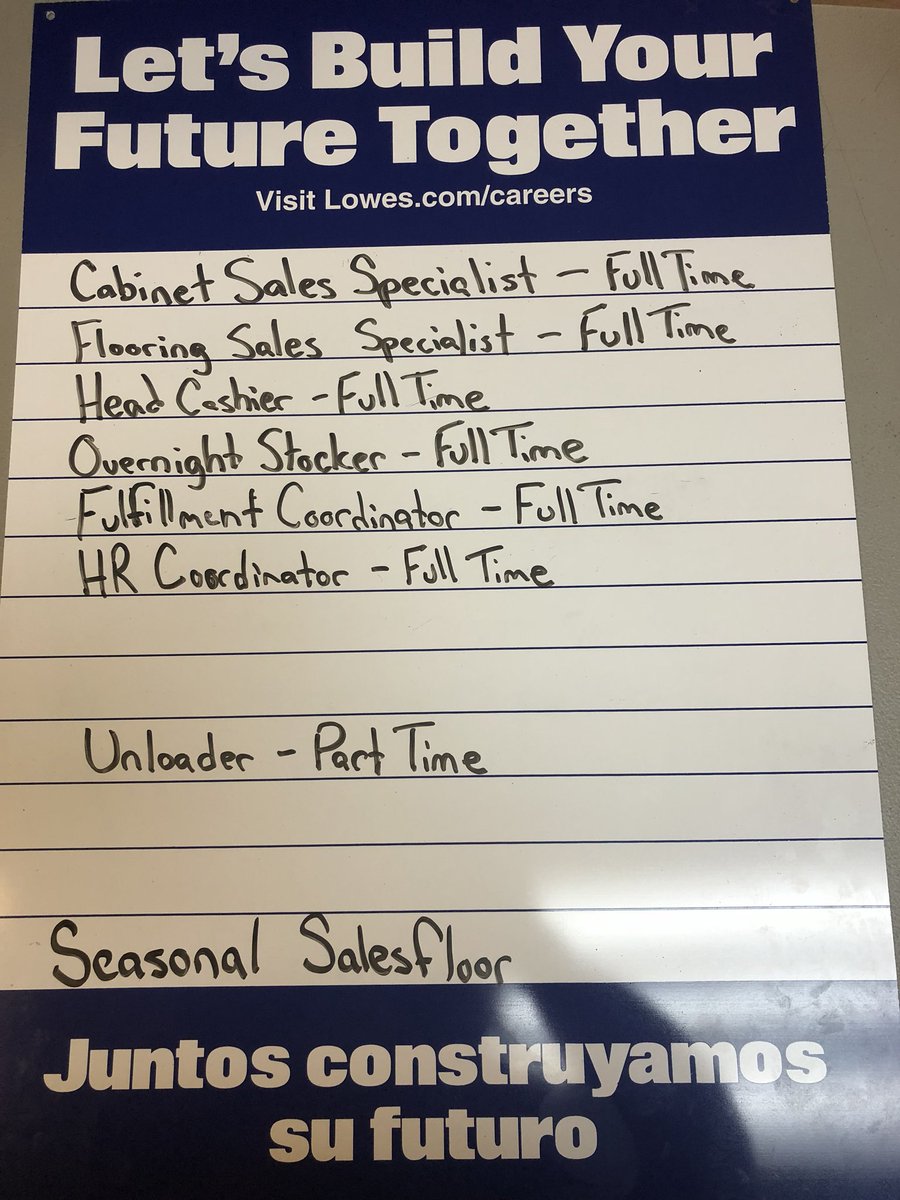 Let's Build Your
Future Together
Visit Lowes.com/careers
Cabinet Sales Specialist - Full Time
Flooring Sales Specialist - Full Time
Head Cashier - Full Time
Overnight Stocker - Full Time
Fulfillment Coordinator - Full Time
HR Coordinator - Full Time
Unloader - Part Time
Seasonal Salesfloor
Juntos construyamos
su futuro